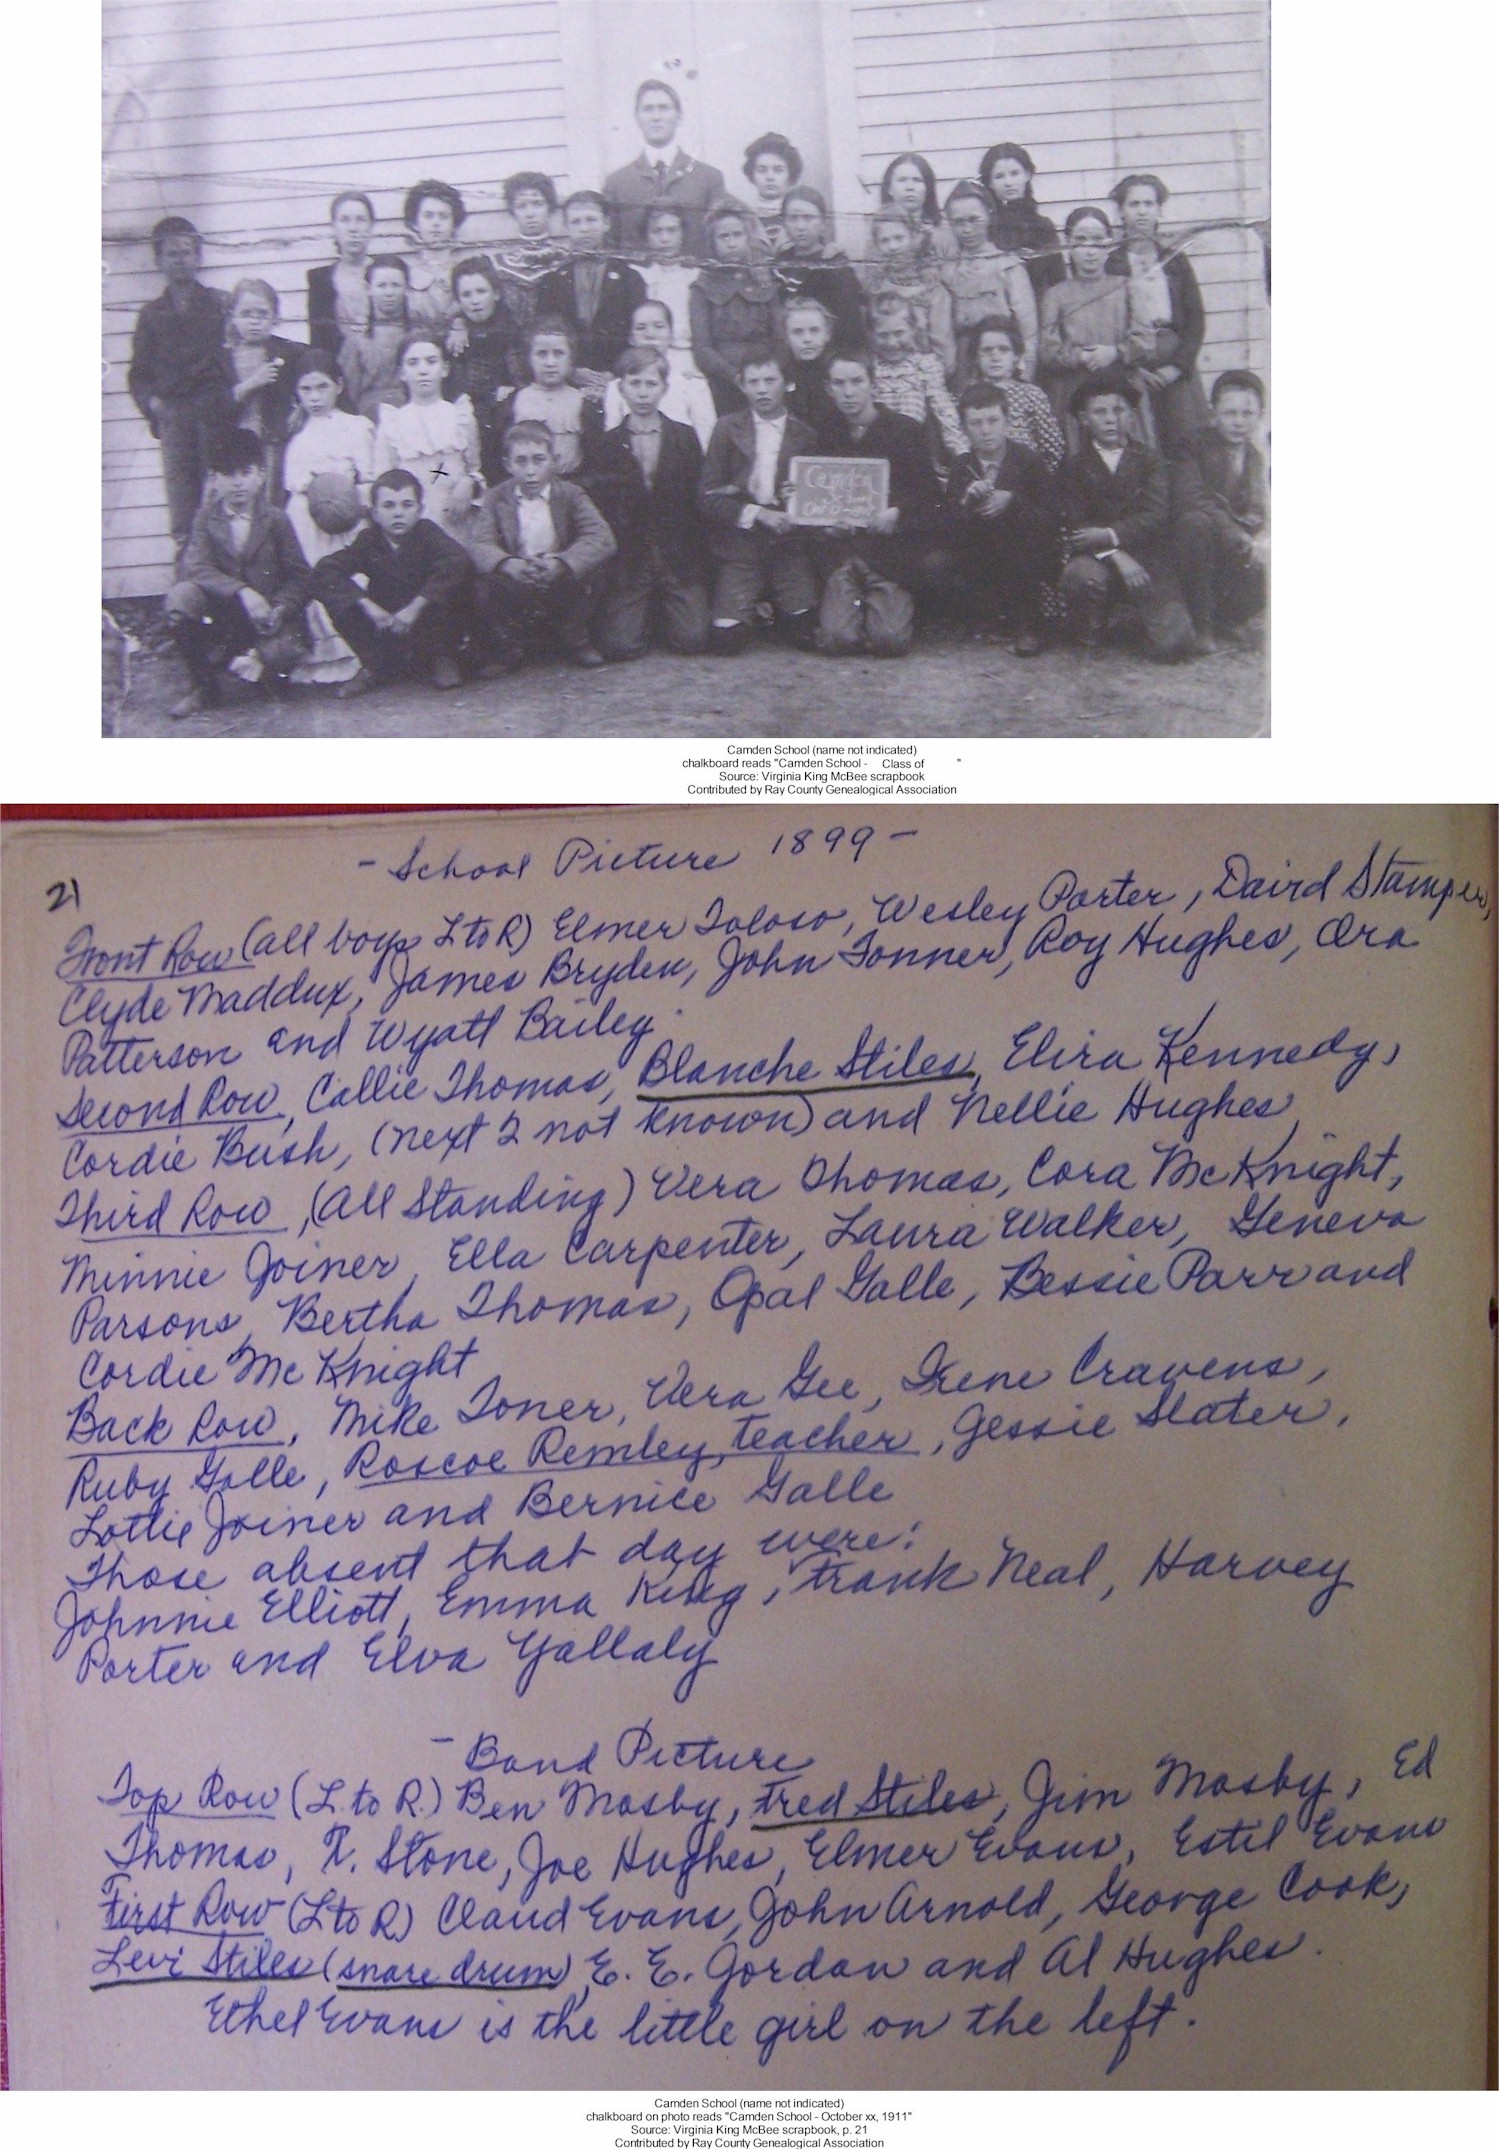 Camden
School
Oct
Camden School (name not indicated)
chalkboard reads "Camden School - Class of "
Source: Virginia King McBee scrapbook
Contributed by Ray County Genealogical Association
- School Picture 1899 -
21
Front Row (all boys L to R) Elmer Toloso, Wesley Porter, Daird Stamper,
Clyde Maddux, James Bryden, John Tonner, Roy Hughes, Ora
Patterson and Wyatt Bailey.
Second Row, Callie Thomas, Blanche Stiles, Elira Kennedy,
Cordie Bush, (next 2 not known) and Nellie Hughes
Third Row, (All Standing) Vera Thomas, Cora McKnight,
Minnie Joiner, Ella Carpenter, Laura Walker, Geneva
Parsons, Bertha Thomas, Opal Galle, Bessie Parr and
Cordie McKnight
Back Row, Mike Toner, Vera Gee, Irene Cravens,
Ruby Galle, Roscoe Remley, teacher, Jessie Slater,
Lottie Joiner and Bernice Galle
Those absent that day were:
Johnnie Elliott, Emma King, Frank Neal, Harvey
Porter and Elva Yallaly
- Band Picture
Top Row (L. to R.) Ben Mosby, Fred Stiles, Jim Mosby, Ed
Thomas, T. Stone, Joe Hughes, Elmer Evans, Estil Evans
First Row (L to R) Claud Evans, John Arnold, George Cook,
Levi Stiles (snare drum), E. E. Gordon and Al Hughes.
Ethel Evans is the little girl on the left.
Camden School (name not indicated)
chalkboard on photo reads "Camden School - October xx, 1911"
Source: Virginia King McBee scrapbook, p. 21
Contributed by Ray County Genealogical Association